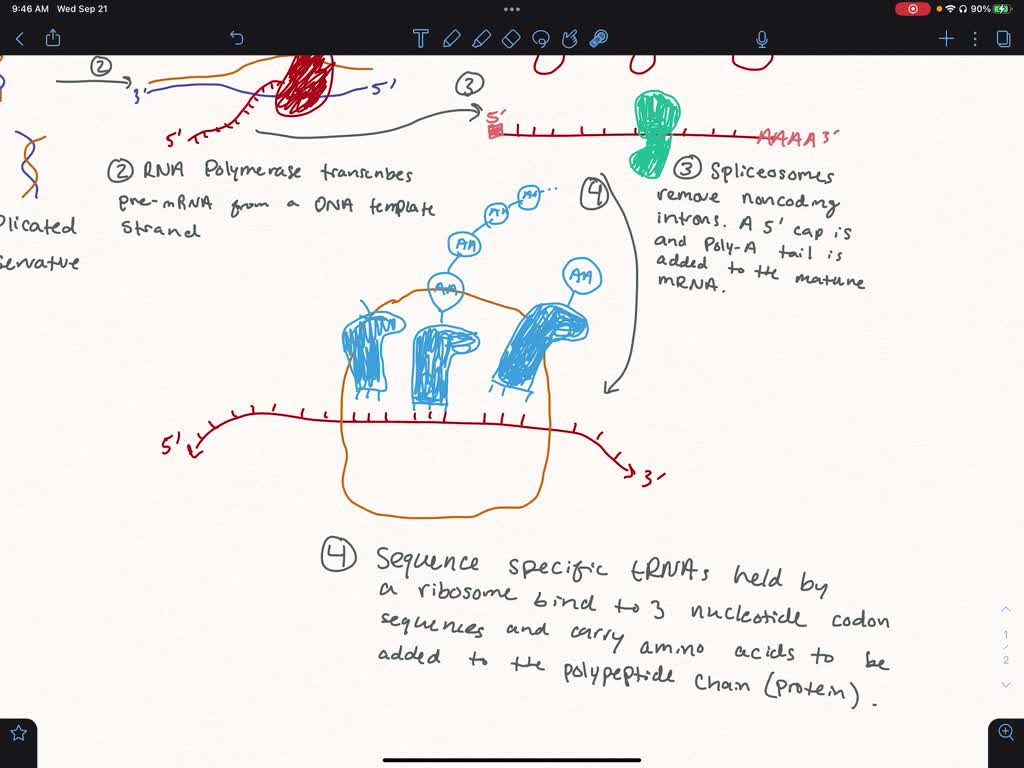 9:46 AM Wed Sep 21
90%
②
3'
5'
5'
③
5'
AAAA 3'
② RNA Polymerase transcribes
pre-mRNA from a DNA template
strand
plicated
servative
③ Spliceosomes
remove noncoding
introns. A 5' cap is
and Poly-A tail is
added to the mature
mRNA.
④
AA
AA
AA
AA
AA
5'
3'
④ Sequence specific tRNAs held by
a ribosome bind to 3 nucleotide codon
sequences and carry amino acids to be
added to the polypeptide chain (protein).
1
2